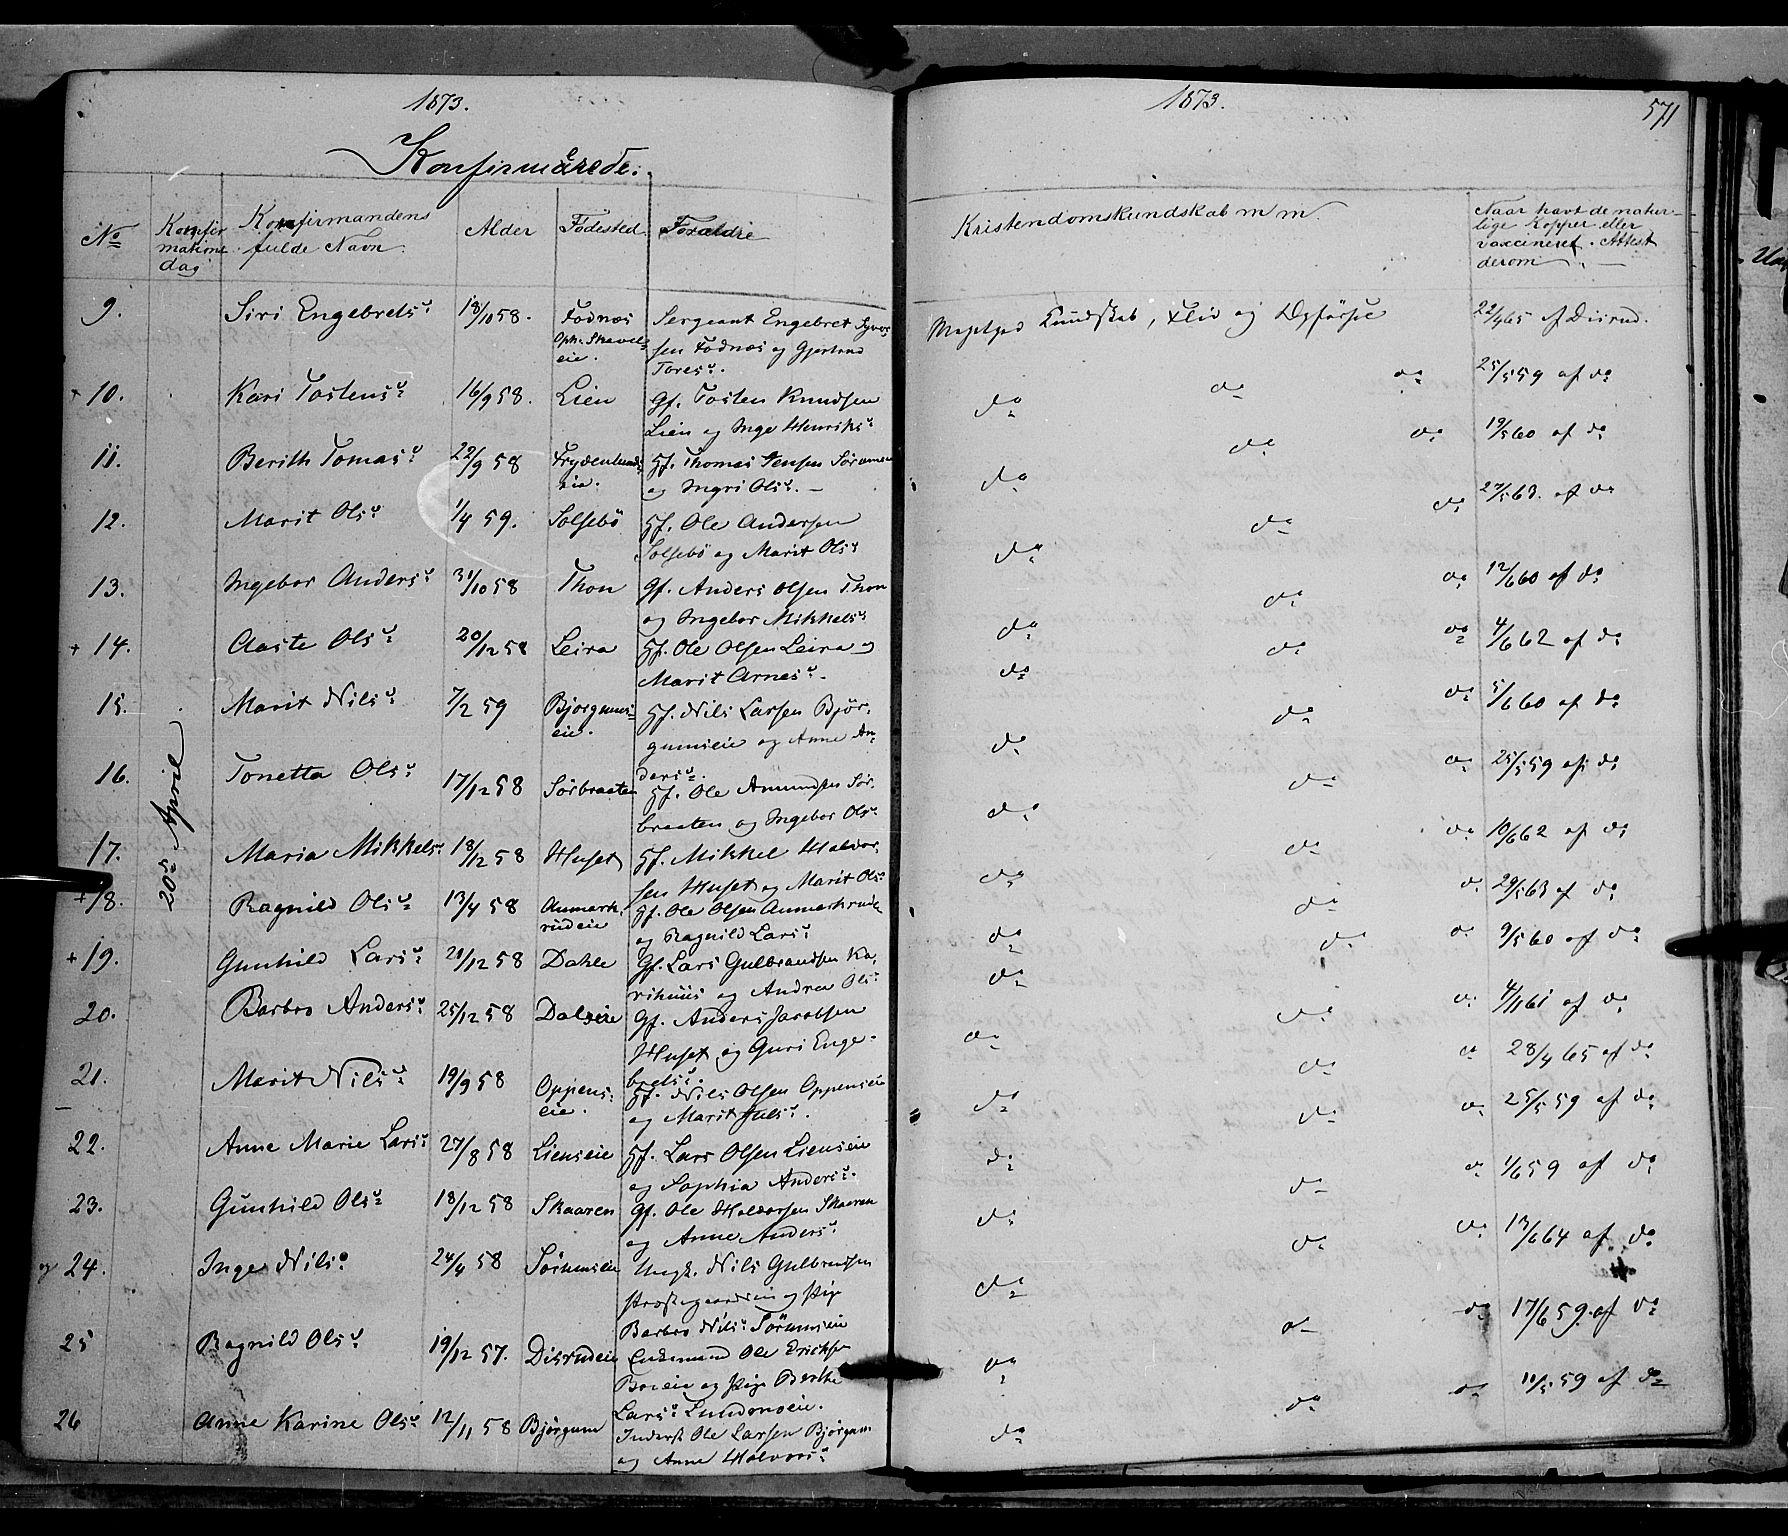 1873.
Konfirmerede.
No
Konfirmations dag
Konfirmandens fulde Navn.
Alder
Fødested
Forældre
20de April
9. Siri Engebretsd 18/10 58. Fodnæs Oph. Skavels-eie. Sergeant Engebret Syver-
sen Fodnæs og Gjertrud
Toresd.
10. Kari Tostensd 16/9 58. Lien Gf. Tosten Knudsen
Lien og Inge Henriksd
11. Berith Tomasd 22/9 58 Frydenlunds eie. Hf. Thomas Jensen Sørumeie
og Ingri Olsd. —
12. Marit Olsd 1/4 59. Solsebö Hf. Ole Andersen
Solsebö og Marit Olsd
13. Ingebor Andersd 31/10 58 Thon Gf. Anders Olsen Thon
og Ingebor Mikkelsd
+ 14. Aaste Olsd 20/12 58 Leira Hf. Ole Olsen Leira og
Marit Arnesd.
15. Marit Nilsd 7/2 59 Bjørgums-eie. Hf. Nils Larsen Bjør-
gumseie og Anne An-
dersd.
16. Tonetta Olsd 17/12 58 Sørbraaten Hf. Ole Amundsen Sør-
braaten og Ingebor Olsd
17. Maria Mikkelsd 18/12 58 Huset Hf. Mikkel Halvor-
sen Huset og Marit Olsd
+ 18. Ragnild Olsd 13/4 58 Aunmark-rudeie Gf. Ole Olsen Aunmarkrude
og Ragnild Larsd
+ 19. Gunhild Larsd 21/12 58 Dahle Gf. Lars Gulbrandsen Ka-
rihuus og Andrea Olsd
20. Barbro Andersd 25/12 58 Dalseie Gf. Anders Jacobsen
Huset og Guri Enge-
bretsd.
21. Marit Nilsd 19/9 58 Oppens-eie. Hf. Nils Olsen Oppenseie
og Marit Julsd.
22. Anne Marie Larsd 27/8 58 Lienseie Hf. Lars Olsen Lienseie
og Sophia Andersd.
23. Gunhild Olsd 18/12 58 Skaaren Gf. Ole Halvorsen Skaaren
og Anne Andersd
24. Inge Nilsd 24/4 58 Sørumseie Ungk. Nils Gulbrandsen
Præstegaardseie og Pige
Barbro Nilsd Sørumseie
25 Ragnild Olsd 19/12 57. Disrudeie Enkemand Ole Ericksen
Boreie og Pige Berthe
Larsd Lundmoeie.
26 Anne Karine Olsd 12/11 58 Bjørgum Inderst Ole Larsen Bjørgum
og Anne Halvorsd
1873.
571
Kristendomskundskab m m.
Naar havt de natur-
lige Kopper eller
vaccineret. Attest
derom
Megetgod Kundskab, Flid og Opførsel 22/4 65 af Disrud.
do do do 25/5 59 af do
do do do 19/5 60 af do
do do do 27/5 63. af do
do do do 12/6 60 af do
do do do 4/6 62 af do
do do do 5/6 60 af do
do do do 25/5 59 af do
do do do 10/6 62 af do
do do do 29/5 63 af do
do do do 9/5 60 af do
do do do 4/11 61 af do
do do do 28/4 65 af do
do do do 25/5 59 af do
do do do 1/6 59 af do
do do do 13/6 64 af do
do do do 17/6 59. af do
do do do 11/5 59 af do